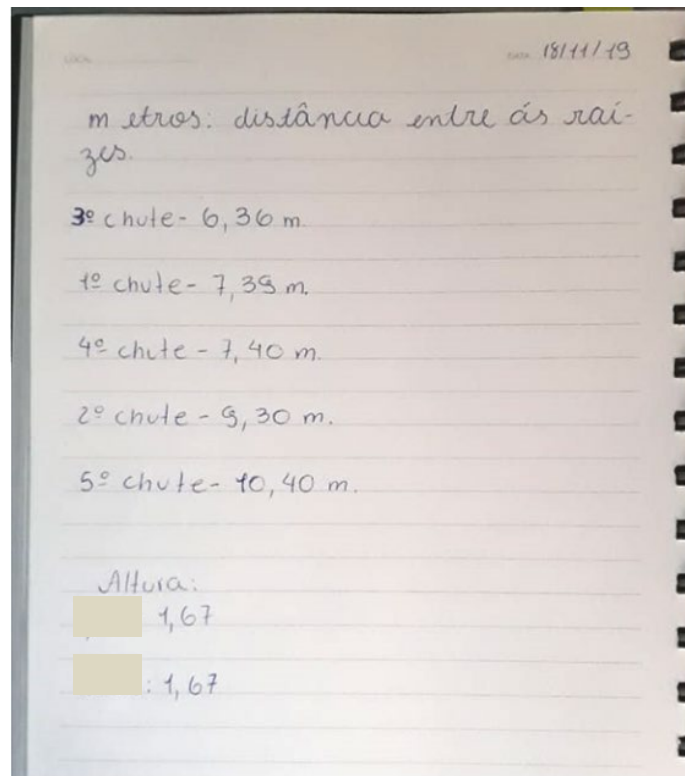 18/11/19
metros: distância entre ás raí-
zes.
3º chute- 6,36 m.
1º chute- 7,39 m.
4º chute- 7,40 m.
2º chute- 9,30 m.
5º chute- 10,40 m.
Altura:
1,67
: 1,67